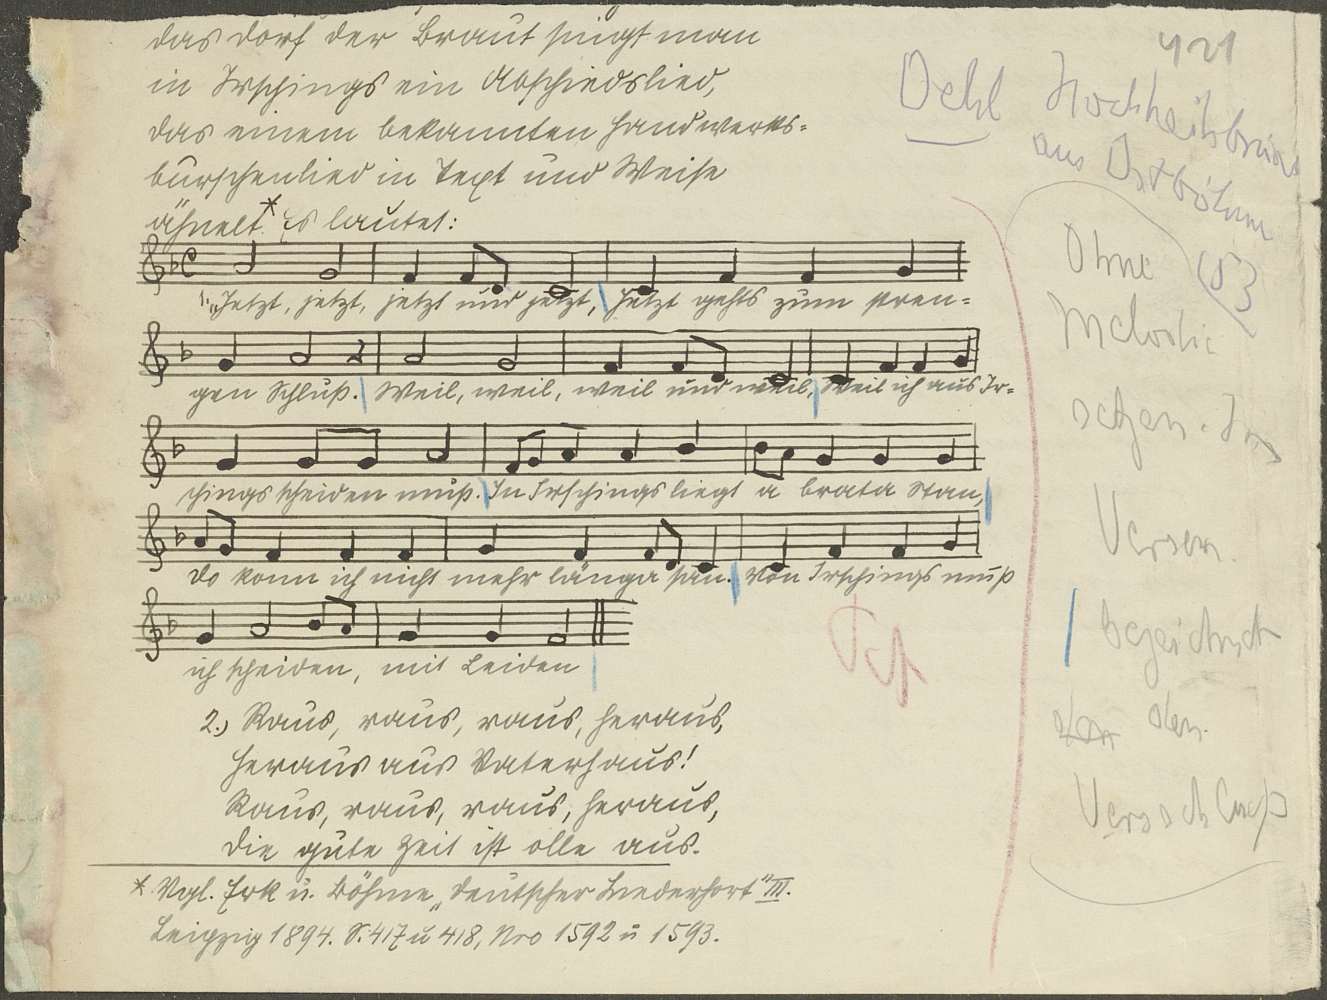 das Dorf der Braut singt man
in Irschings ein Abschiedslied,
das einem bekannten Handwerks-
burschenlied in Text und Weise
ähnelt.* Es lautet:
1. „Jetzt, jetzt, jetzt und jetzt, Jetzt gehts zum stren-
gen Schluß. Weil, weil, weil und weil, Weil ich aus Ir-
schings scheiden muß. In Irschings liegt a brata Stan,
Do konn ich nicht mehr länga san. Von Irschings muß
ich scheiden, mit Leiden
2.) Raus, raus, raus, heraus,
Heraus aus Vaterhaus!
Raus, raus, raus, heraus,
Die gute Zeit ist olle aus.
* Vgl. Erk u. Böhme „Deutscher Liederhort" III.
Leipzig 1894. S. 417 u 418, Nro 1592 u 1593.
421
Oehl Hochzeitsbräuche
aus Ostböhmen
Ohne (53)
Melodie
setzen. In
Versen.
| bezeichnet
den
Versschluß